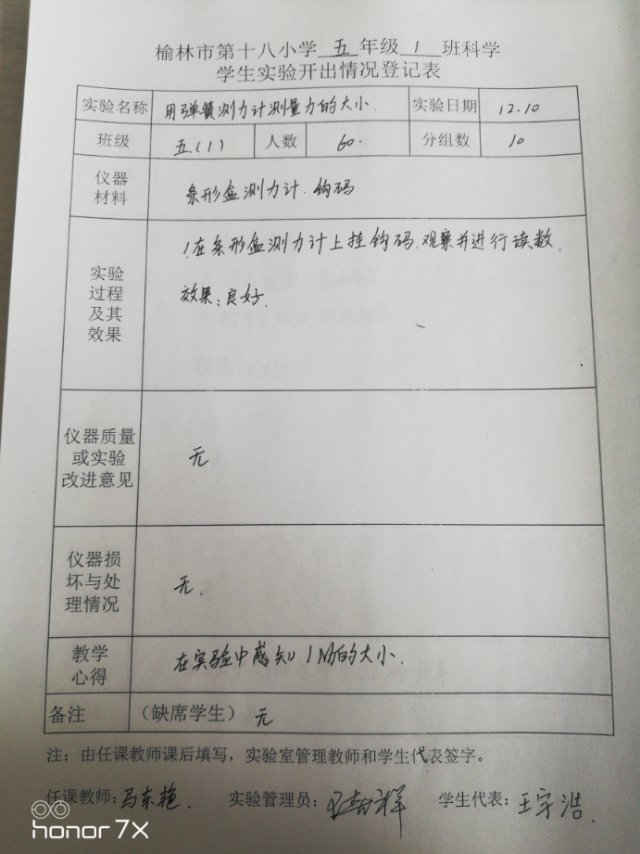 榆林市第十八小学 五 年级 1 班科学
学生实验开出情况登记表
实验名称 用弹簧测力计测量力的大小. 实验日期 12.10
班级 五.(1) 人数 60. 分组数 10
仪器
材料 条形盒测力计.钩码
1.在条形盒测力计上挂钩码.观察并进行读数.
效果:良好.
实验
过程
及其
效果
仪器质量
或实验
改进意见
无
仪器损
坏与处
理情况
无.
教学
心得
在实验中感知1N的大小.
备注 (缺席学生) 无
注:由任课教师课后填写,实验室管理教师和学生代表签字。
任课教师:马东艳. 实验管理员: 学生代表:王宇浩.
honor 7X